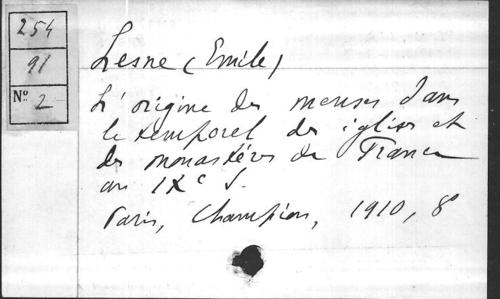 254
91
Nº 2
Lesne (Emile)
L'origine des menses dans
le temporel des églises et
des monastères de France
au IXe S.
Paris, Champion, 1910, 8º